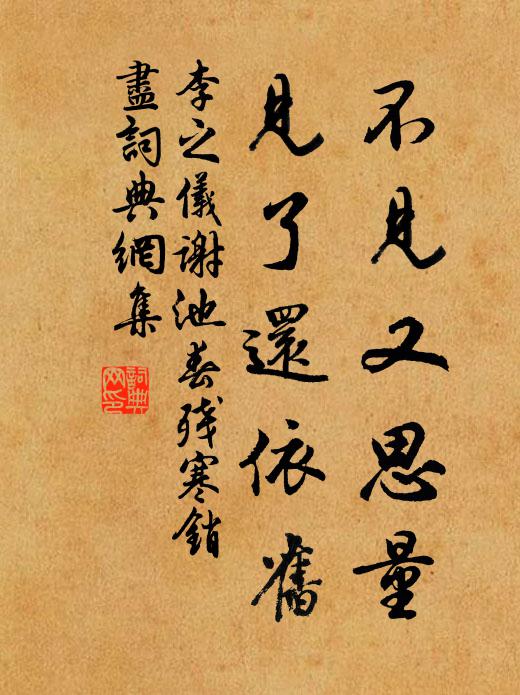 不見又思量
見了還依舊
李之儀謝池春殘寒銷
盡詞典網集
詞典
网印